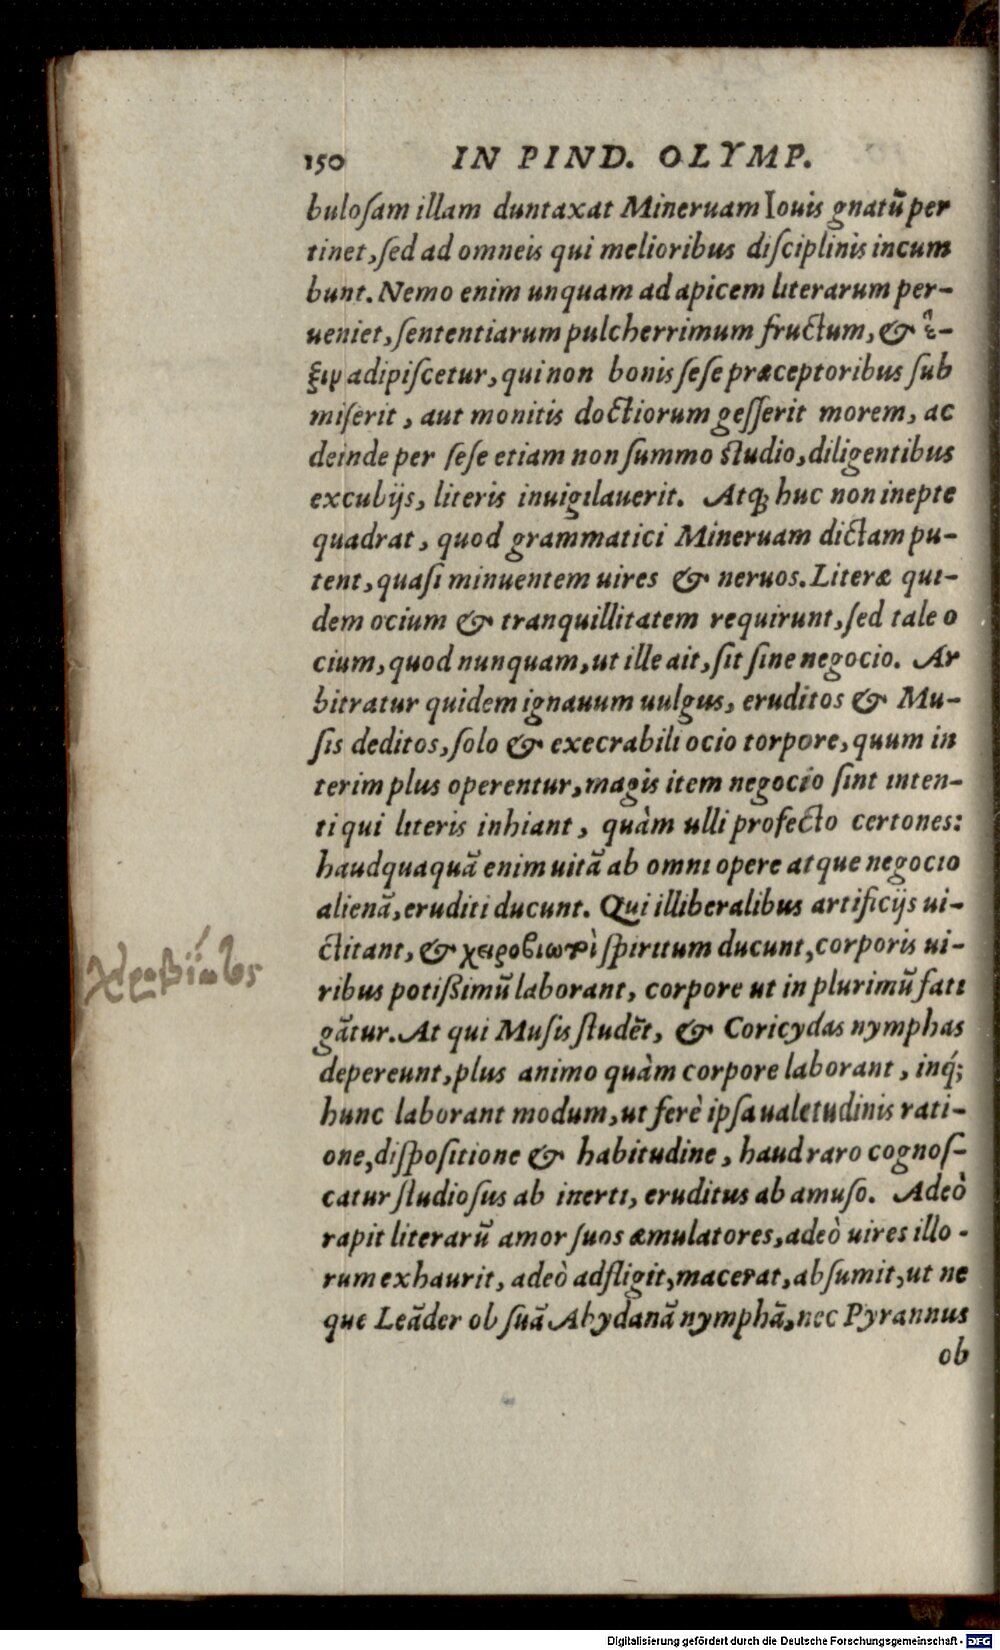 150 IN PIND. OLYMP.
buloſam illam duntaxat Mineruam Iouis gnatũ per
tinet, ſed ad omneis qui melioribus diſciplinis incum
bunt. Nemo enim unquam ad apicem literarum per-
ueniet, ſententiarum pulcherrimum fructum, & ἕ-
ξιν adipiſcetur, qui non bonis ſeſe præceptoribus ſub
miſerit, aut monitis doctiorum geſſerit morem, ac
deinde per ſeſe etiam non ſummo ſtudio, diligentibus
excubijs, literis inuigilauerit. Atq; huc non inepte
quadrat, quod grammatici Mineruam dictam pu-
tent, quaſi minuentem uires & neruos. Literæ qui-
dem ocium & tranquillitatem requirunt, ſed tale o
cium, quod nunquam, ut ille ait, ſit ſine negocio. Ar
bitratur quidem ignauum uulgus, eruditos & Mu-
ſis deditos, ſolo & execrabili ocio torpore, quum in
terim plus operentur, magis item negocio ſint inten-
ti qui literis inhiant, quàm ulli profecto certones:
haudquaquã enim uitã ab omni opere atque negocio
alienã, eruditi ducunt. Qui illiberalibus artificijs ui-
ctitant, & χειροβιωτὶ ſpiritum ducunt, corporis ui-
χειροβίωτος
ribus potißimũ laborant, corpore ut in plurimũ fati
gãtur. At qui Muſis ſtudẽt, & Coricydas nymphas
depereunt, plus animo quàm corpore laborant, inq́;
hunc laborant modum, ut ferè ipſa ualetudinis rati-
one, diſpoſitione & habitudine, haud raro cognoſ-
catur ſtudioſus ab inerti, eruditus ab amuſo. Adeò
rapit literarũ amor ſuos æmulatores, adeò uires illo-
rum exhaurit, adeò adfligit, macerat, abſumit, ut ne
que Leãder ob ſuã Abydanã nymphã, nec Pyrannus
ob
Digitalisierung gefördert durch die Deutsche Forschungsgemeinschaft - DFG